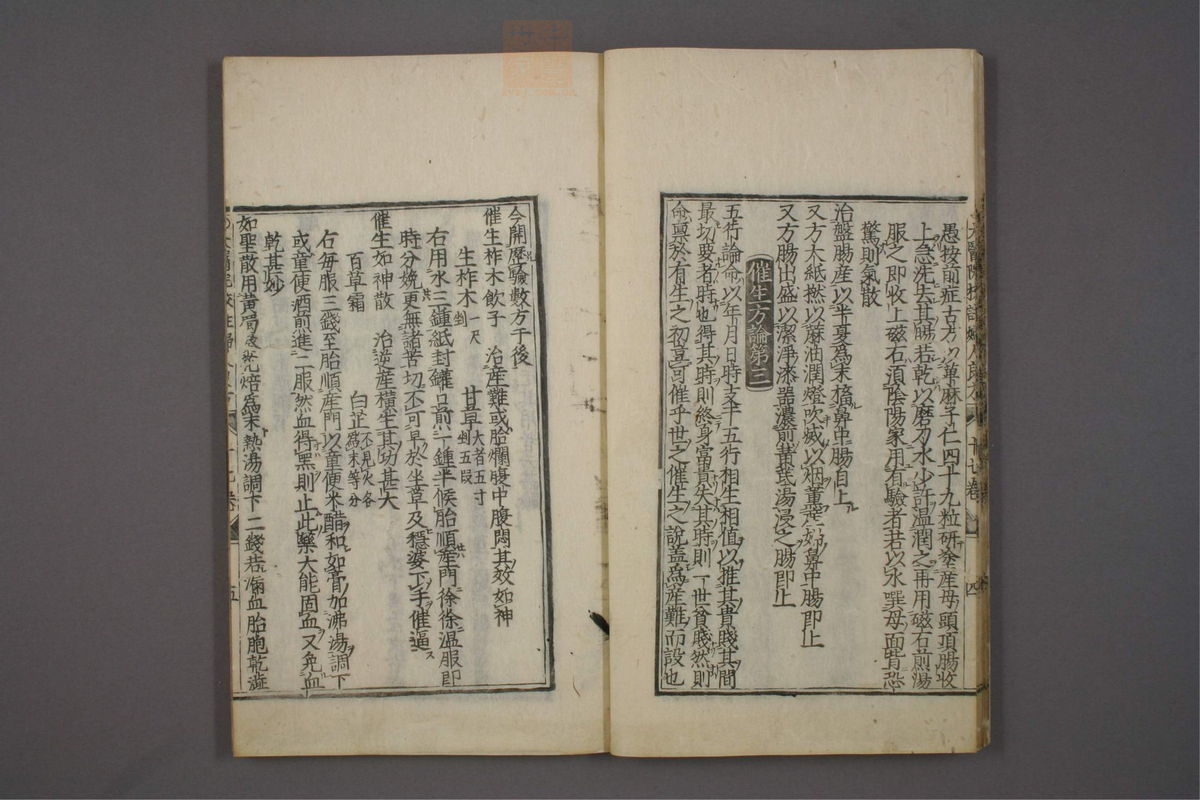 愚按前症古方以萆麻子仁四十九粒研塗産母頭頂腸收
上急洗去其腸若乾以磨刀水少許温潤之再用磁石煎湯
服之即收上磁石須陰陽家用有驗者若以水噀母面背恐
驚則氣散
治盤腸産以半夏爲末搐鼻中腸自上
又方大紙撚以蔴油潤燈吹滅以烟薰産婦鼻中腸即上
又方腸出盛以潔淨漆器濃煎黄芪湯浸之腸即上
催生方論第三
五行論命以年月日時支干五行相生相值以推其貴賤其間
最切要者時也得其時則終身富貴失其時則一世貧賤然則
命稟於有生之初豈可催乎世之催生之說蓋爲産難而設也
十七卷
四
今開歷驗数方于後
催生柞木飲子 治産難或胎爛腹中腹悶其效如神
生柞木一尺剉 甘草大者五寸剉五段
右用水三鍾紙封罐口煎一鍾半候胎順産門徐徐温服即
時分娩更無諸苦切不可早於坐草及穩婆下手催逼
催生如神散 治逆産橫生其功甚大
百草霜 白芷不見火各爲末等分
右每服三錢至胎順産門以童便米醋和如膏加沸湯調下
或童便酒煎進二服然血得黑則止此藥大能固血又免血
乾甚妙
如聖散用黄蜀葵花焙爲末熱湯調下二錢若漏血胎胞乾澁
五